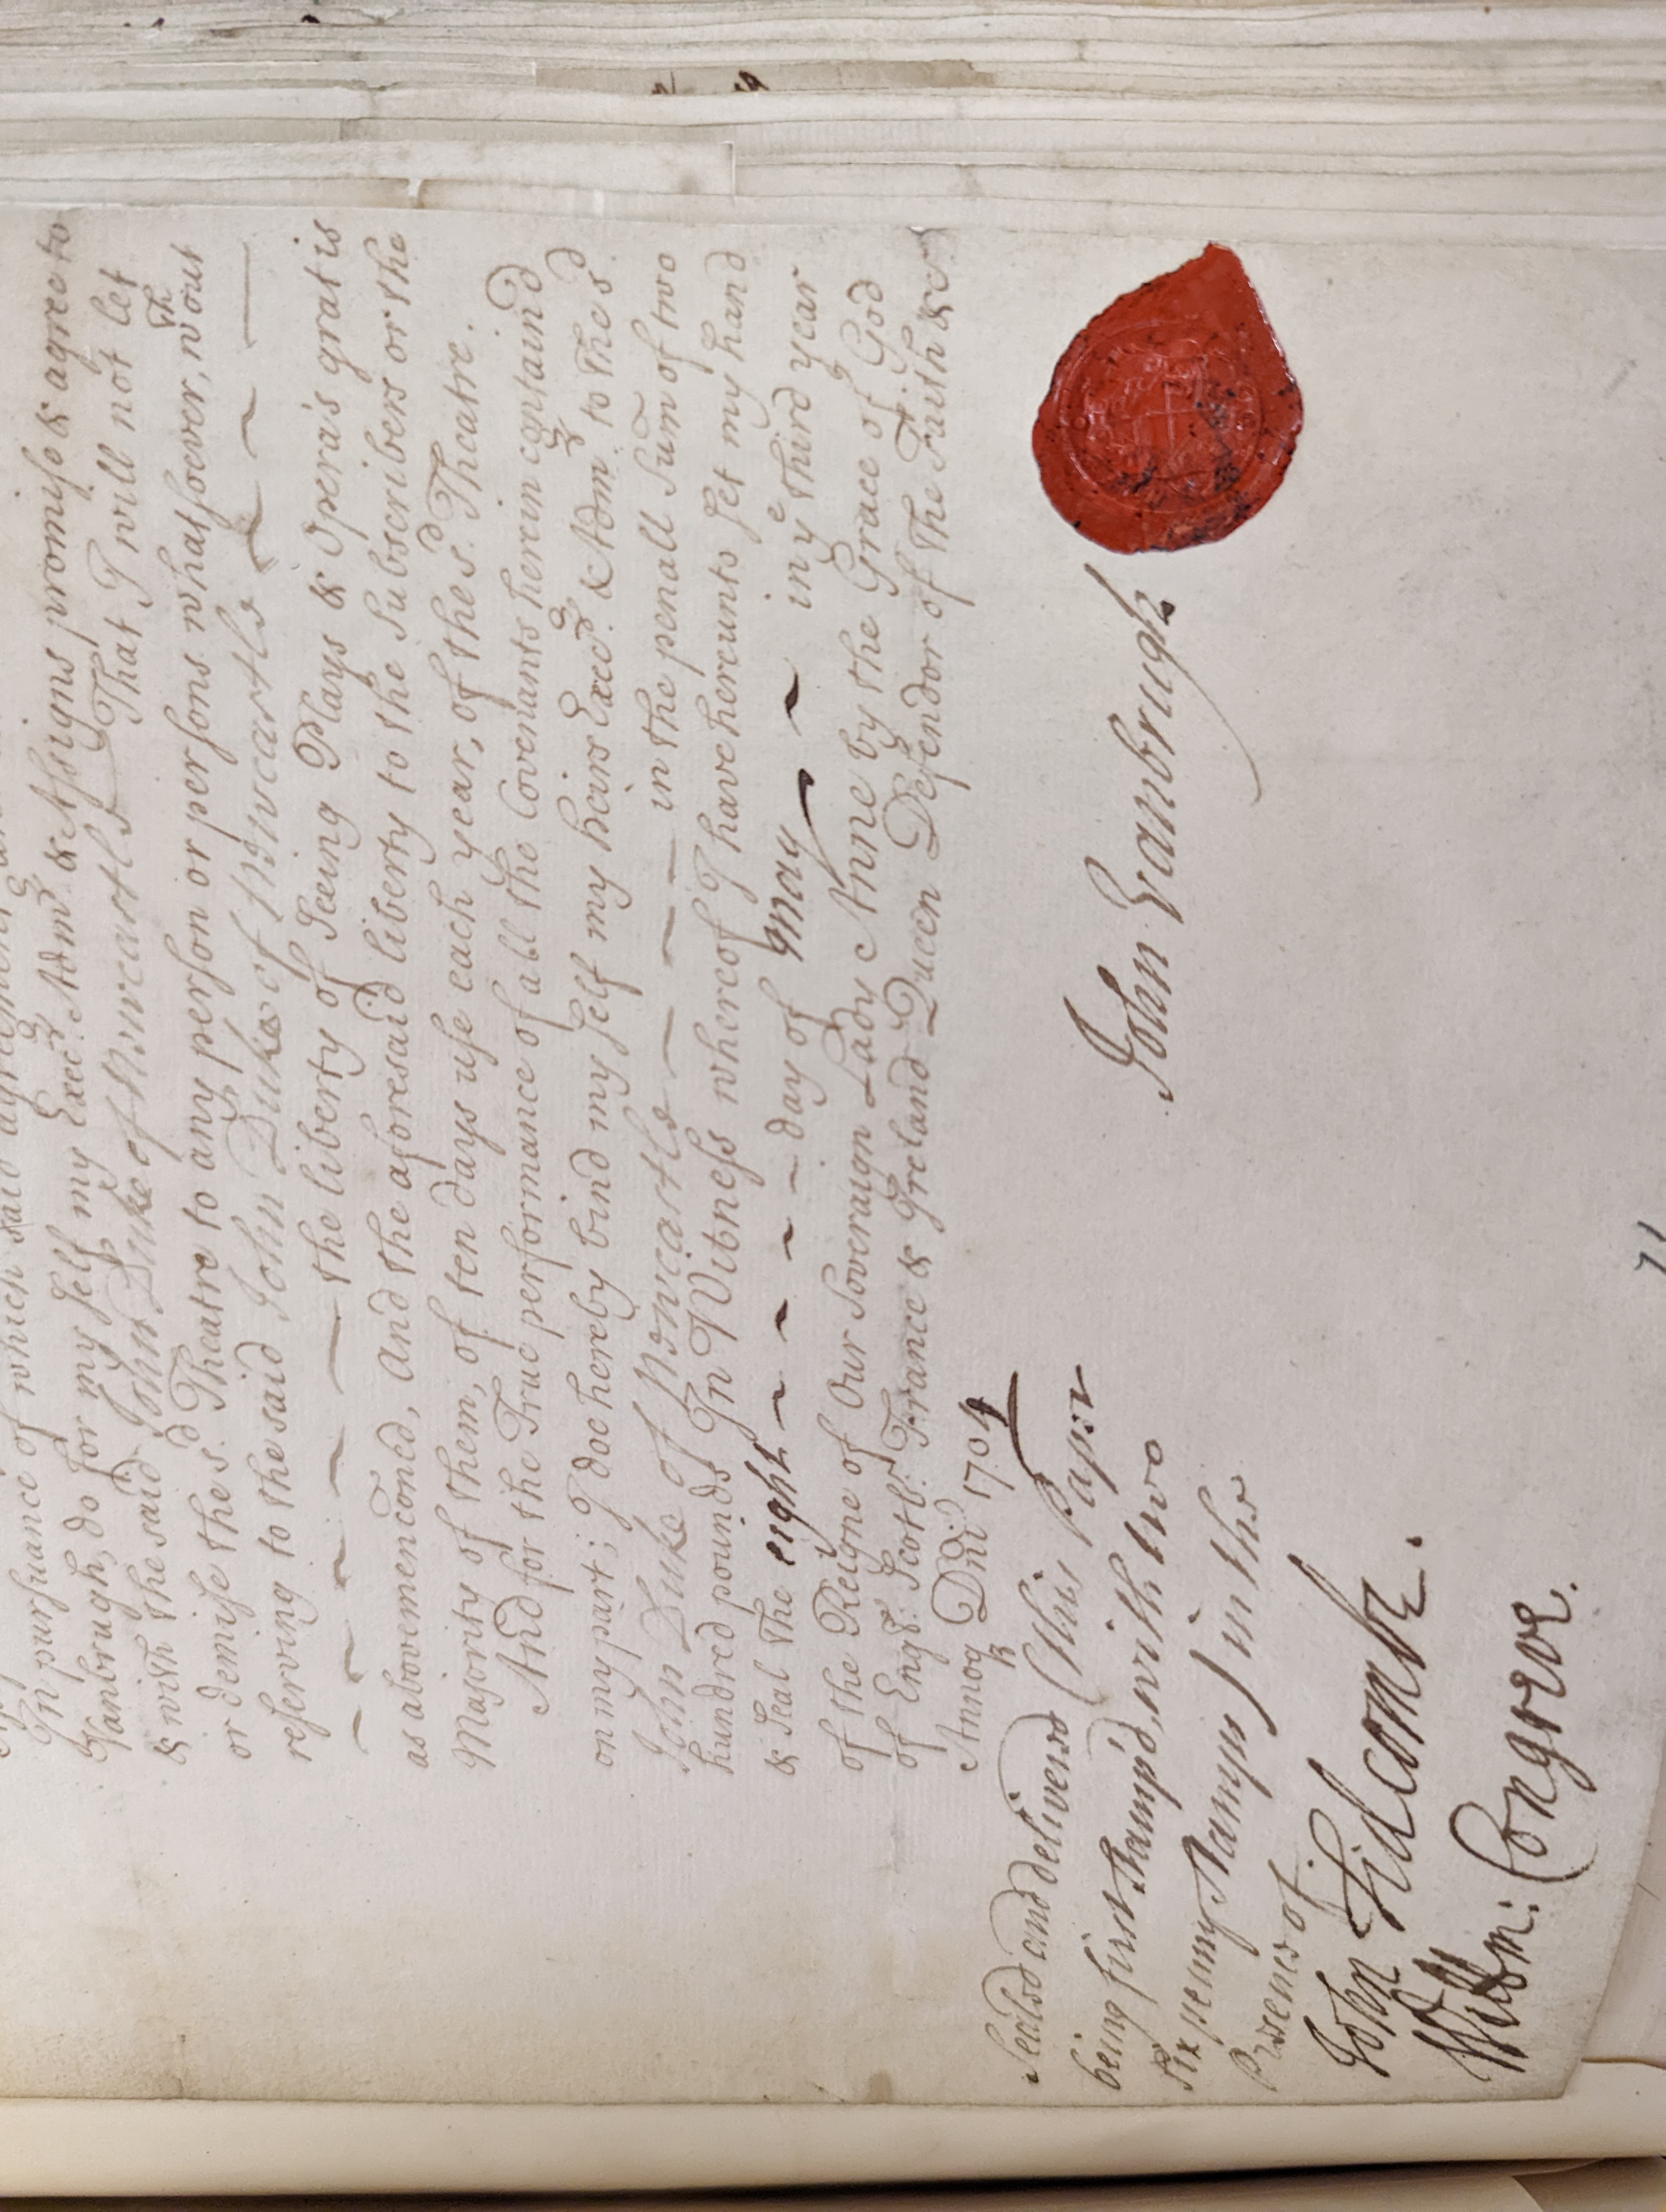 In pursuance of which said agreement
Vanbrugh, do for my self my Execrs. Admrs & Assigns promise & agree to
& with the said John Duke of Newcastle That I will not let
or demise the sd. Theatre to any person or persons whatsoever, wth out
reserving to the said John Duke of Newcastle ~ ~ —
~ ~ ~ ~ — — the liberty of seeing Plays & Opera's gratis
as abovemenconed, And the aforesaid liberty to the Subscribers or the
Majority of them, of ten days use each year, of the sd. Theatre.
And for the True performance of all the Covenants herein containd
on my part; I doe hereby bind my self my heirs Execrs. & Admrs. to the sd.
John Duke of Newcastle — — — — in the penall Sum of two
hundred pounds In Witness whereof I have hereunto set my hand
& Seal the eight ~ ~ ~ ~ day of may ~ ~ in ye third year
of the Reigne of Our Soveraign Lady Anne by the Grace of God
of Engld. Scotld. France & Ireland Queen Defendor of the Faith &c.
Annoq Dni 1704
John Vanbrugh
Sealed and delivered (this Paper
being first stamp'd, with two
six penny stamps) in the
Presence of
John Tidcombe.
Willm: Congreve.
71